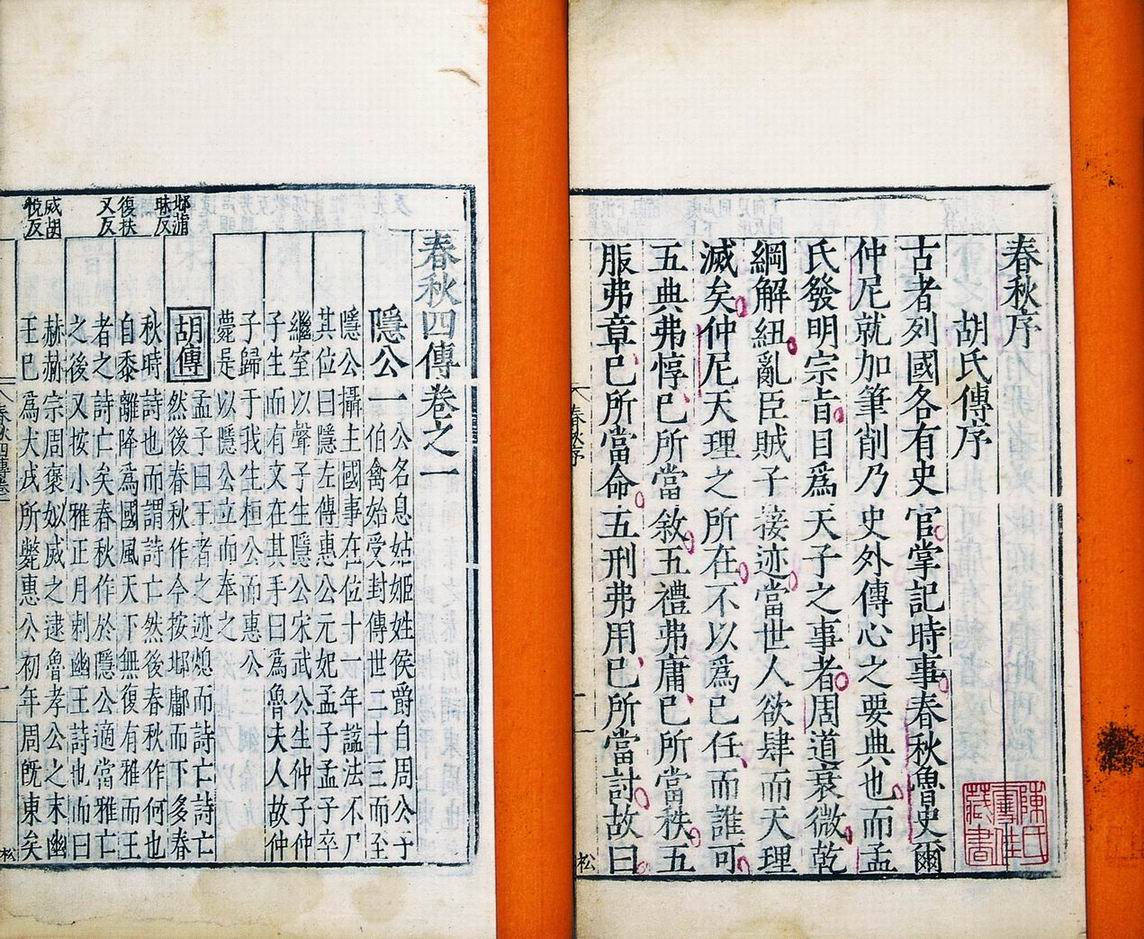 春秋序
胡氏傳序
古者列國各有史官掌記時事春秋魯史爾
仲尼就加筆削乃史外傳心之要典也而孟
氏發明宗旨目爲天子之事者周道衰微乾
綱解紐亂臣賊子接迹當世人欲肆而天理
滅矣仲尼天理之所在不以爲已任而誰可
五典弗惇已所當敘五禮弗庸已所當秩五
服弗章已所當命五刑弗用已所當討故曰
陳氏
藏書
春秋序
一
松
春秋四傳卷之一
隱公一
公名息姑姬姓侯爵自周公子
伯禽始受封傳世二十三而至
隱公攝主國事在位十一年諡法不尸
其位曰隱左傳惠公元妃孟子孟子卒
繼室以聲子生隱公宋武公生仲子仲
子生而有文在其手曰爲魯夫人故仲
子歸于我生桓公而惠公
薨是以隱公立而奉之
胡傳
孟子曰王者之迹熄而詩亡詩亡
然後春秋作今按邶鄘而下多春
秋時詩也而謂詩亡然後春秋作何也
自黍離降爲國風天下無復有雅而王
者之詩亡矣春秋作於隱公適當雅亡
之後又按小雅正月刺幽王詩也而曰
赫赫宗周褒姒烕之逮魯孝公之末幽
王已爲犬戎所斃惠公初年周旣東矣
邶蒲
昧反
復扶
又反
烕胡
悅反
春秋四傳卷一
一
松